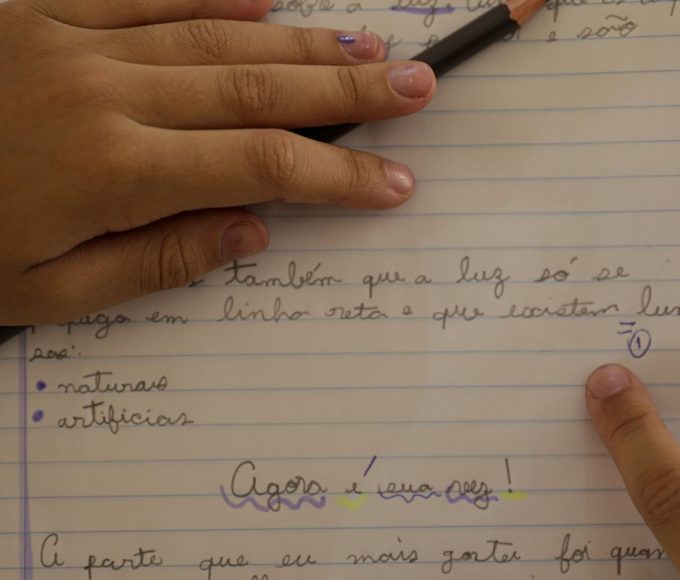 sobre a luz
e são
também que a luz só se
em linha reta e que existem
= ①
• naturais
• artificias
Agora é sua vez!
A parte que eu mais gostei foi